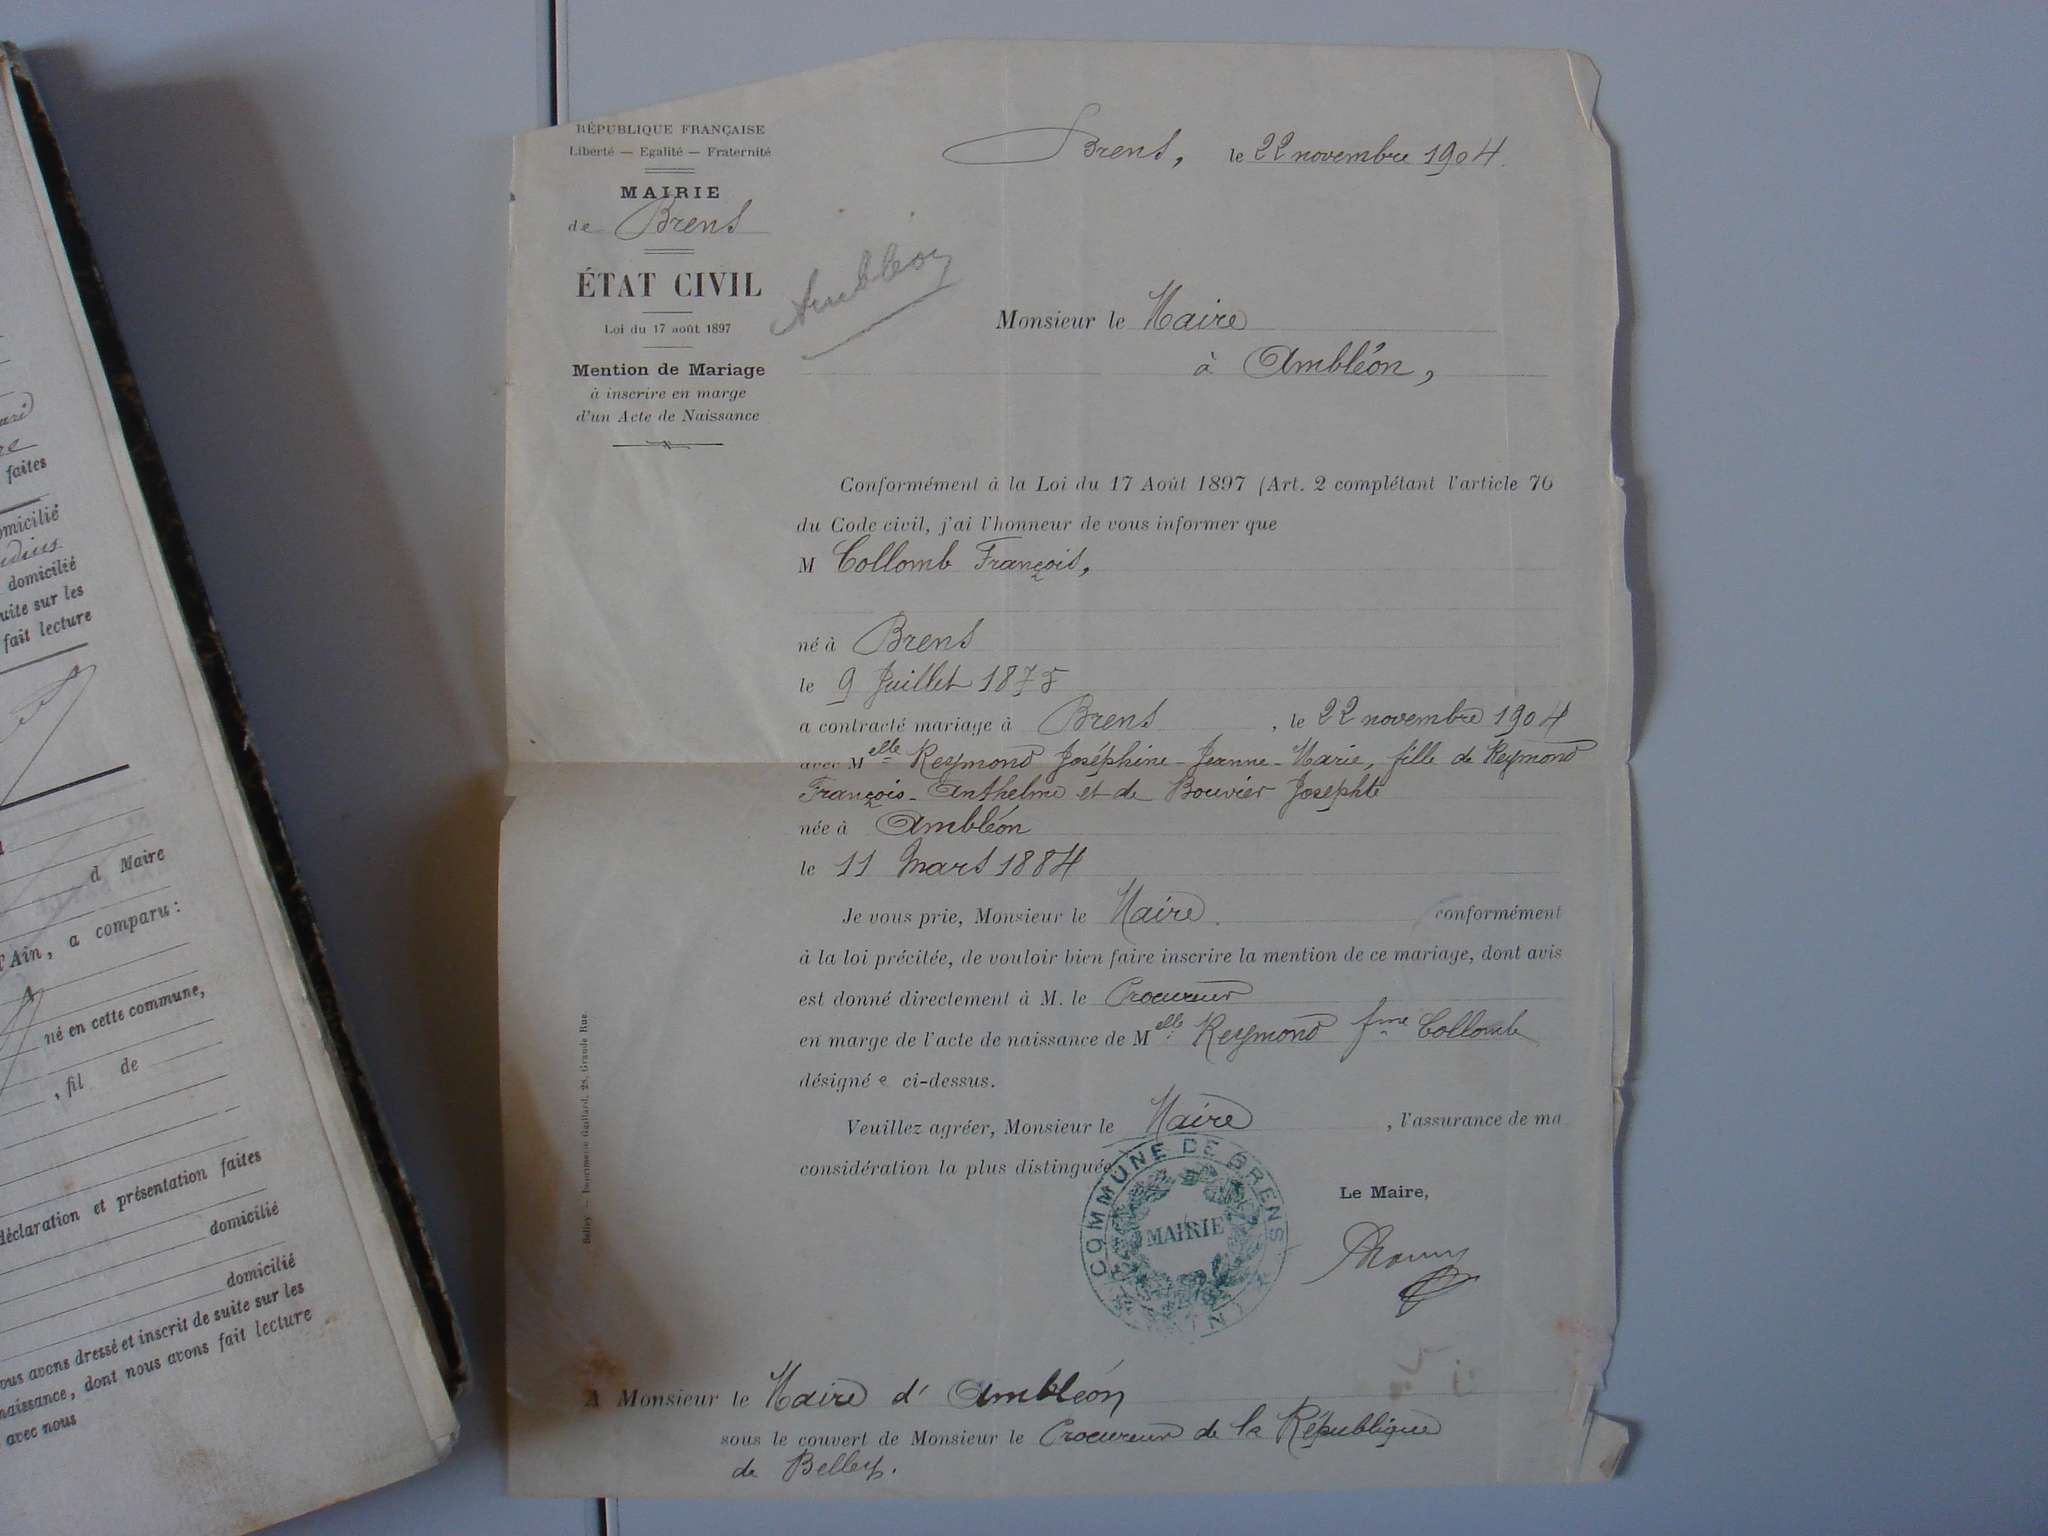 faites
domicilié
domicilié
suite sur les
fait lecture
d Maire
l'Ain, a comparu :
né en cette commune,
, fil de
déclaration et présentation faites
domicilié
domicilié
nous avons dressé et inscrit de suite sur les
naissance, dont nous avons fait lecture
avec nous
RÉPUBLIQUE FRANÇAISE
Liberté — Egalité — Fraternité
MAIRIE
de Brens
ÉTAT CIVIL
Loi du 17 août 1897
Mention de Mariage
à inscrire en marge
d'un Acte de Naissance
Ambléon
Brens, le 22 novembre 1904.
Monsieur le Maire
à Ambléon,
Conformément à la Loi du 17 Août 1897 (Art. 2 complétant l'article 76
du Code civil, j'ai l'honneur de vous informer que
M Collomb François,
né à Brens
le 9 Juillet 1875
a contracté mariage à Brens , le 22 novembre 1904
avec Melle Reymond Joséphine-Jeanne-Marie, fille de Reymond
François-Anthelme et de Bouvier Josephte
née à Ambléon
le 11 Mars 1884
Je vous prie, Monsieur le Maire. conformément
à la loi précitée, de vouloir bien faire inscrire la mention de ce mariage, dont avis
est donné directement à M. le Procureur
en marge de l'acte de naissance de Melle Reymond fme Collomb
désigné e ci-dessus.
Veuillez agréer, Monsieur le Maire , l'assurance de ma
considération la plus distinguée
COMMUNE DE BRENS
MAIRIE
Le Maire,
A Monsieur le Maire d'Ambléon
sous le couvert de Monsieur le Procureur de la République
de Belley.
Belley — Imprimerie Gaillard, 28, Grande Rue